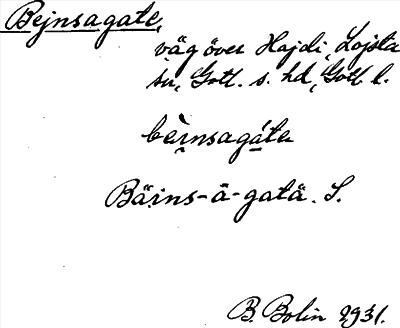 Bejnsagate,
väg över Hajdi, Lojsta
sn, Gotl. s. hd, Gotl. l.
bèi̯nsagáte
Bäins-ä-gatä. S.
B. Bolin 1931.